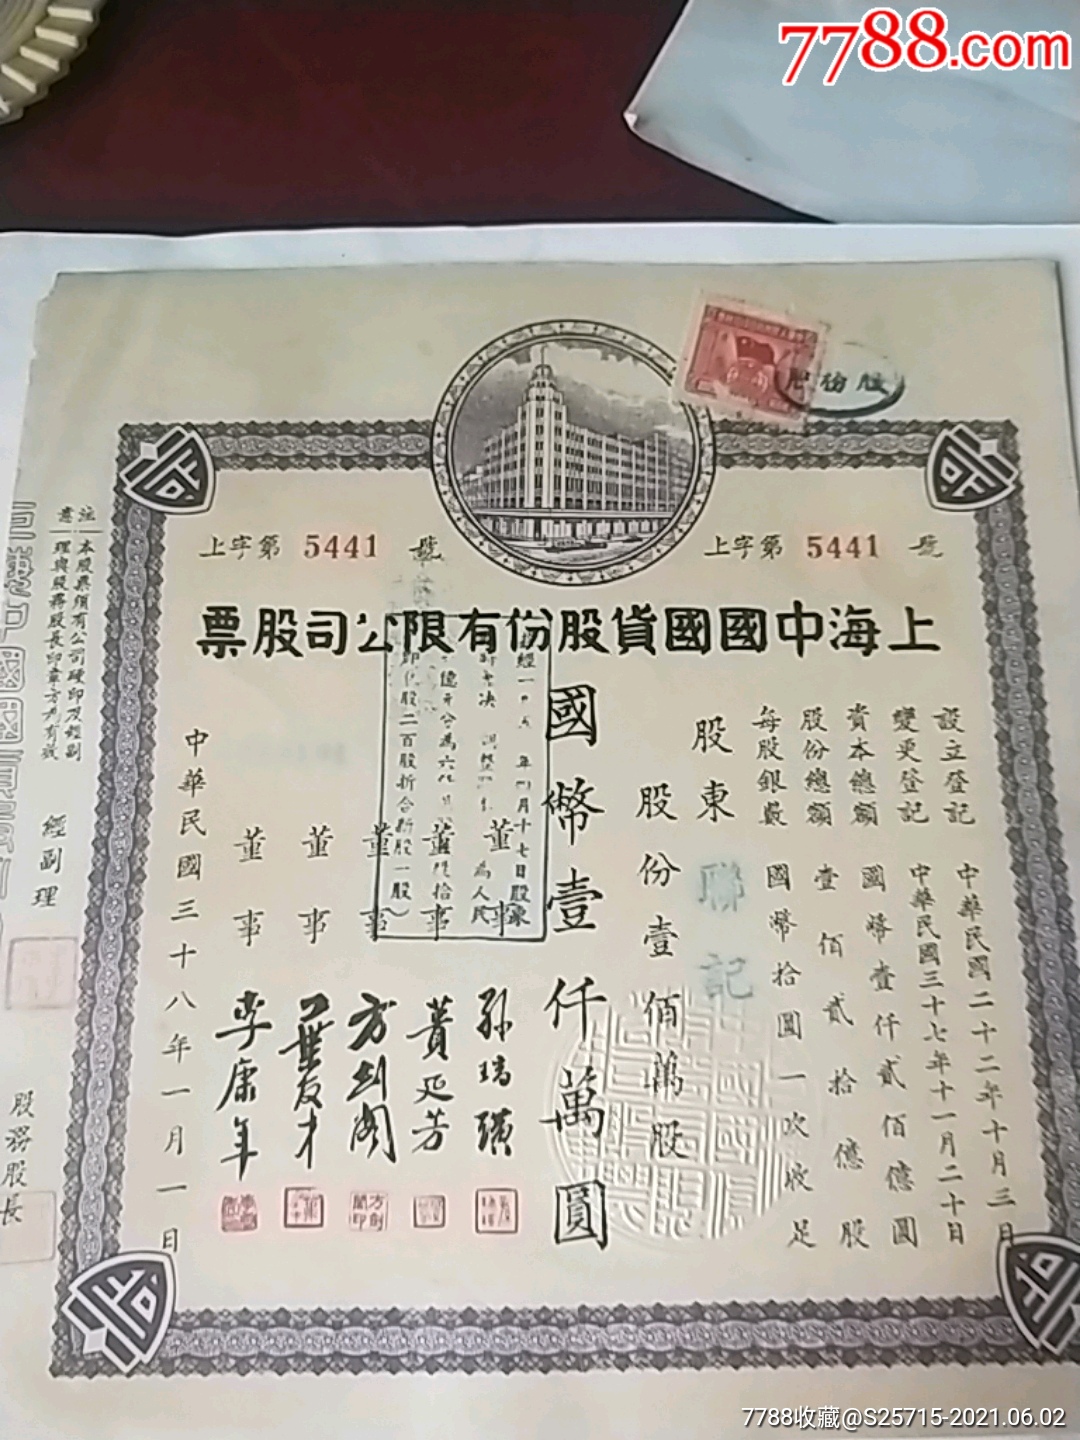 7788.com
股份股
上字第 5441 號
上字第 5441 號
上海中國國貨股份有限公司股票
設立登記 中華民國二十二年十月三日
變更登記 中華民國三十七年十一月二十日
資本總額 國幣壹仟貳佰億圓
股份總額 壹佰貳拾億股
每股銀數 國幣拾圓一次收足
股東 聯記
股份壹佰萬股
國幣壹仟萬圓
董事 孫瑞璜
董事 黃延芳
董事 方劍閣
董事 葉友才
董事 李康年
中華民國三十八年一月一日
注意
本股票須有公司硬印及經副
理與股務股長印章方為有效
經副理
股務股長
7788收藏@S25715-2021.06.02